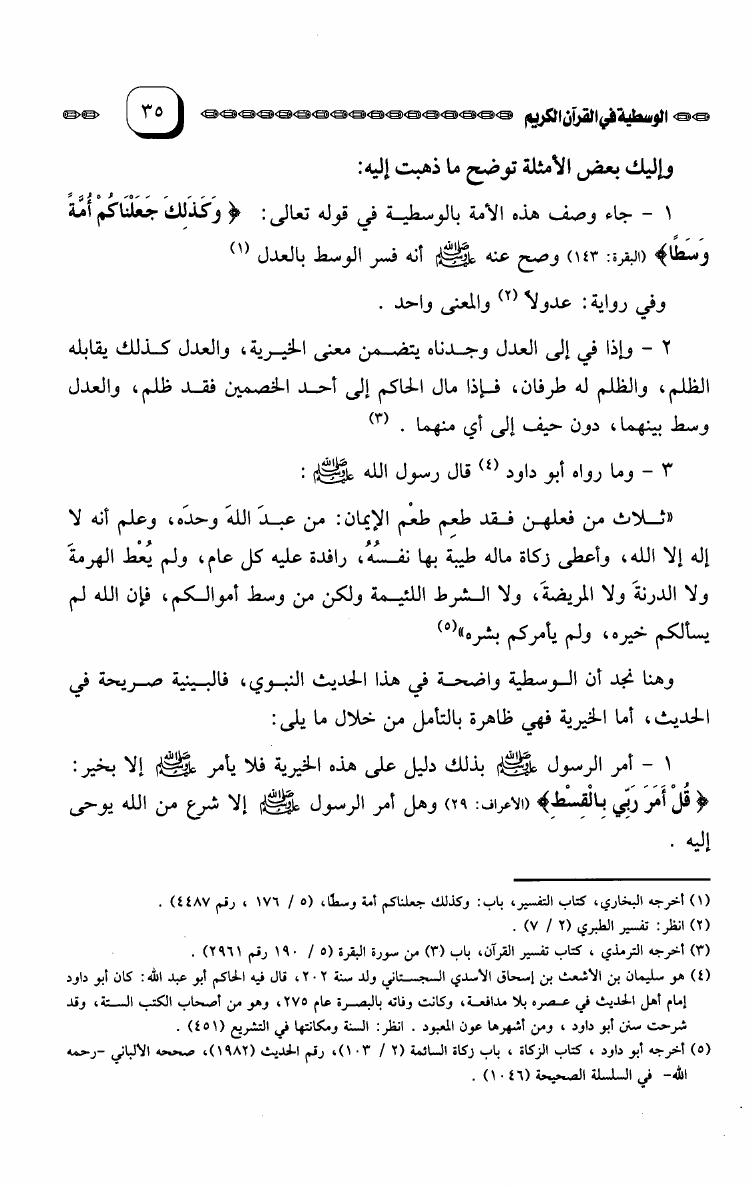 الوسطية في القرآن الكريم ٣٥
وإليك بعض الأمثلة توضح ما ذهبت إليه:
١ - جاء وصف هذه الأمة بالوسطيـة في قوله تعالى: ﴿ وَكَذَلِكَ جَعَلْنَاكُمْ أُمَّةً
وَسَطًا﴾ (البقرة: ١٤٣) وصح عنه ﷺ أنه فسر الوسط بالعدل (١)
وفي رواية: عدولاً (٢) والمعنى واحد .
٢ - وإذا في إلى العدل وجدناه يتضمن معنى الخيرية، والعدل كذلك يقابله
الظلم، والظلم له طرفان، فإذا مال الحاكم إلى أحد الخصمين فقد ظلم، والعدل
وسط بينهما، دون حيف إلى أي منهما . (٣)
٣ - وما رواه أبو داود (٤) قال رسول الله ﷺ :
«ثلاث من فعلهن فقد طعِم طعْم الإيمان: من عبدَ اللهَ وحدَه، وعلم أنه لا
إله إلا الله، وأعطى زكاة ماله طيبة بها نفسُهُ، رافدة عليه كل عام، ولم يُعْط الهرمةَ
ولا الدرنةَ ولا المريضةَ، ولا الشرط اللئيمة ولكن من وسط أموالكم، فإن الله لم
يسألكم خيره، ولم يأمركم بشره»(٥)
وهنا نجد أن الوسطية واضحة في هذا الحديث النبوي، فالبينية صريحة في
الحديث، أما الخيرية فهي ظاهرة بالتأمل من خلال ما يلى:
١ - أمر الرسول ﷺ بذلك دليل على هذه الخيرية فلا يأمر ﷺ إلا بخير:
﴿ قُلْ أَمَرَ رَبِّي بِالْقِسْطِ﴾ (الأعراف: ٢٩) وهل أمر الرسول ﷺ إلا شرع من الله يوحى
إليه .
(١) أخرجه البخاري، كتاب التفسير، باب: وكذلك جعلناكم أمة وسطًا، (٥ / ١٧٦ ، رقم ٤٤٨٧) .
(٢) انظر: تفسير الطبري (٢ / ٧) .
(٣) أخرجه الترمذي ، كتاب تفسير القرآن، باب (٣) من سورة البقرة (٥ / ١٩٠ رقم ٢٩٦١) .
(٤) هو سليمان بن الأشعث بن إسحاق الأسدي السجستاني ولد سنة ٢٠٢، قال فيه الحاكم أبو عبد الله: كان أبو داود
إمام أهل الحديث في عصره بلا مدافعة، وكانت وفاته بالبصرة عام ٢٧٥، وهو من أصحاب الكتب الستة، وقد
شرحت سنن أبو داود ، ومن أشهرها عون المعبود . انظر: السنة ومكانتها في التشريع (٤٥١) .
(٥) أخرجه أبو داود ، كتاب الزكاة ، باب زكاة السائمة (٢ / ١٠٣)، رقم الحديث (١٩٨٢)، صححه الألباني -رحمه
الله- في السلسلة الصحيحة (١٠٤٦) .